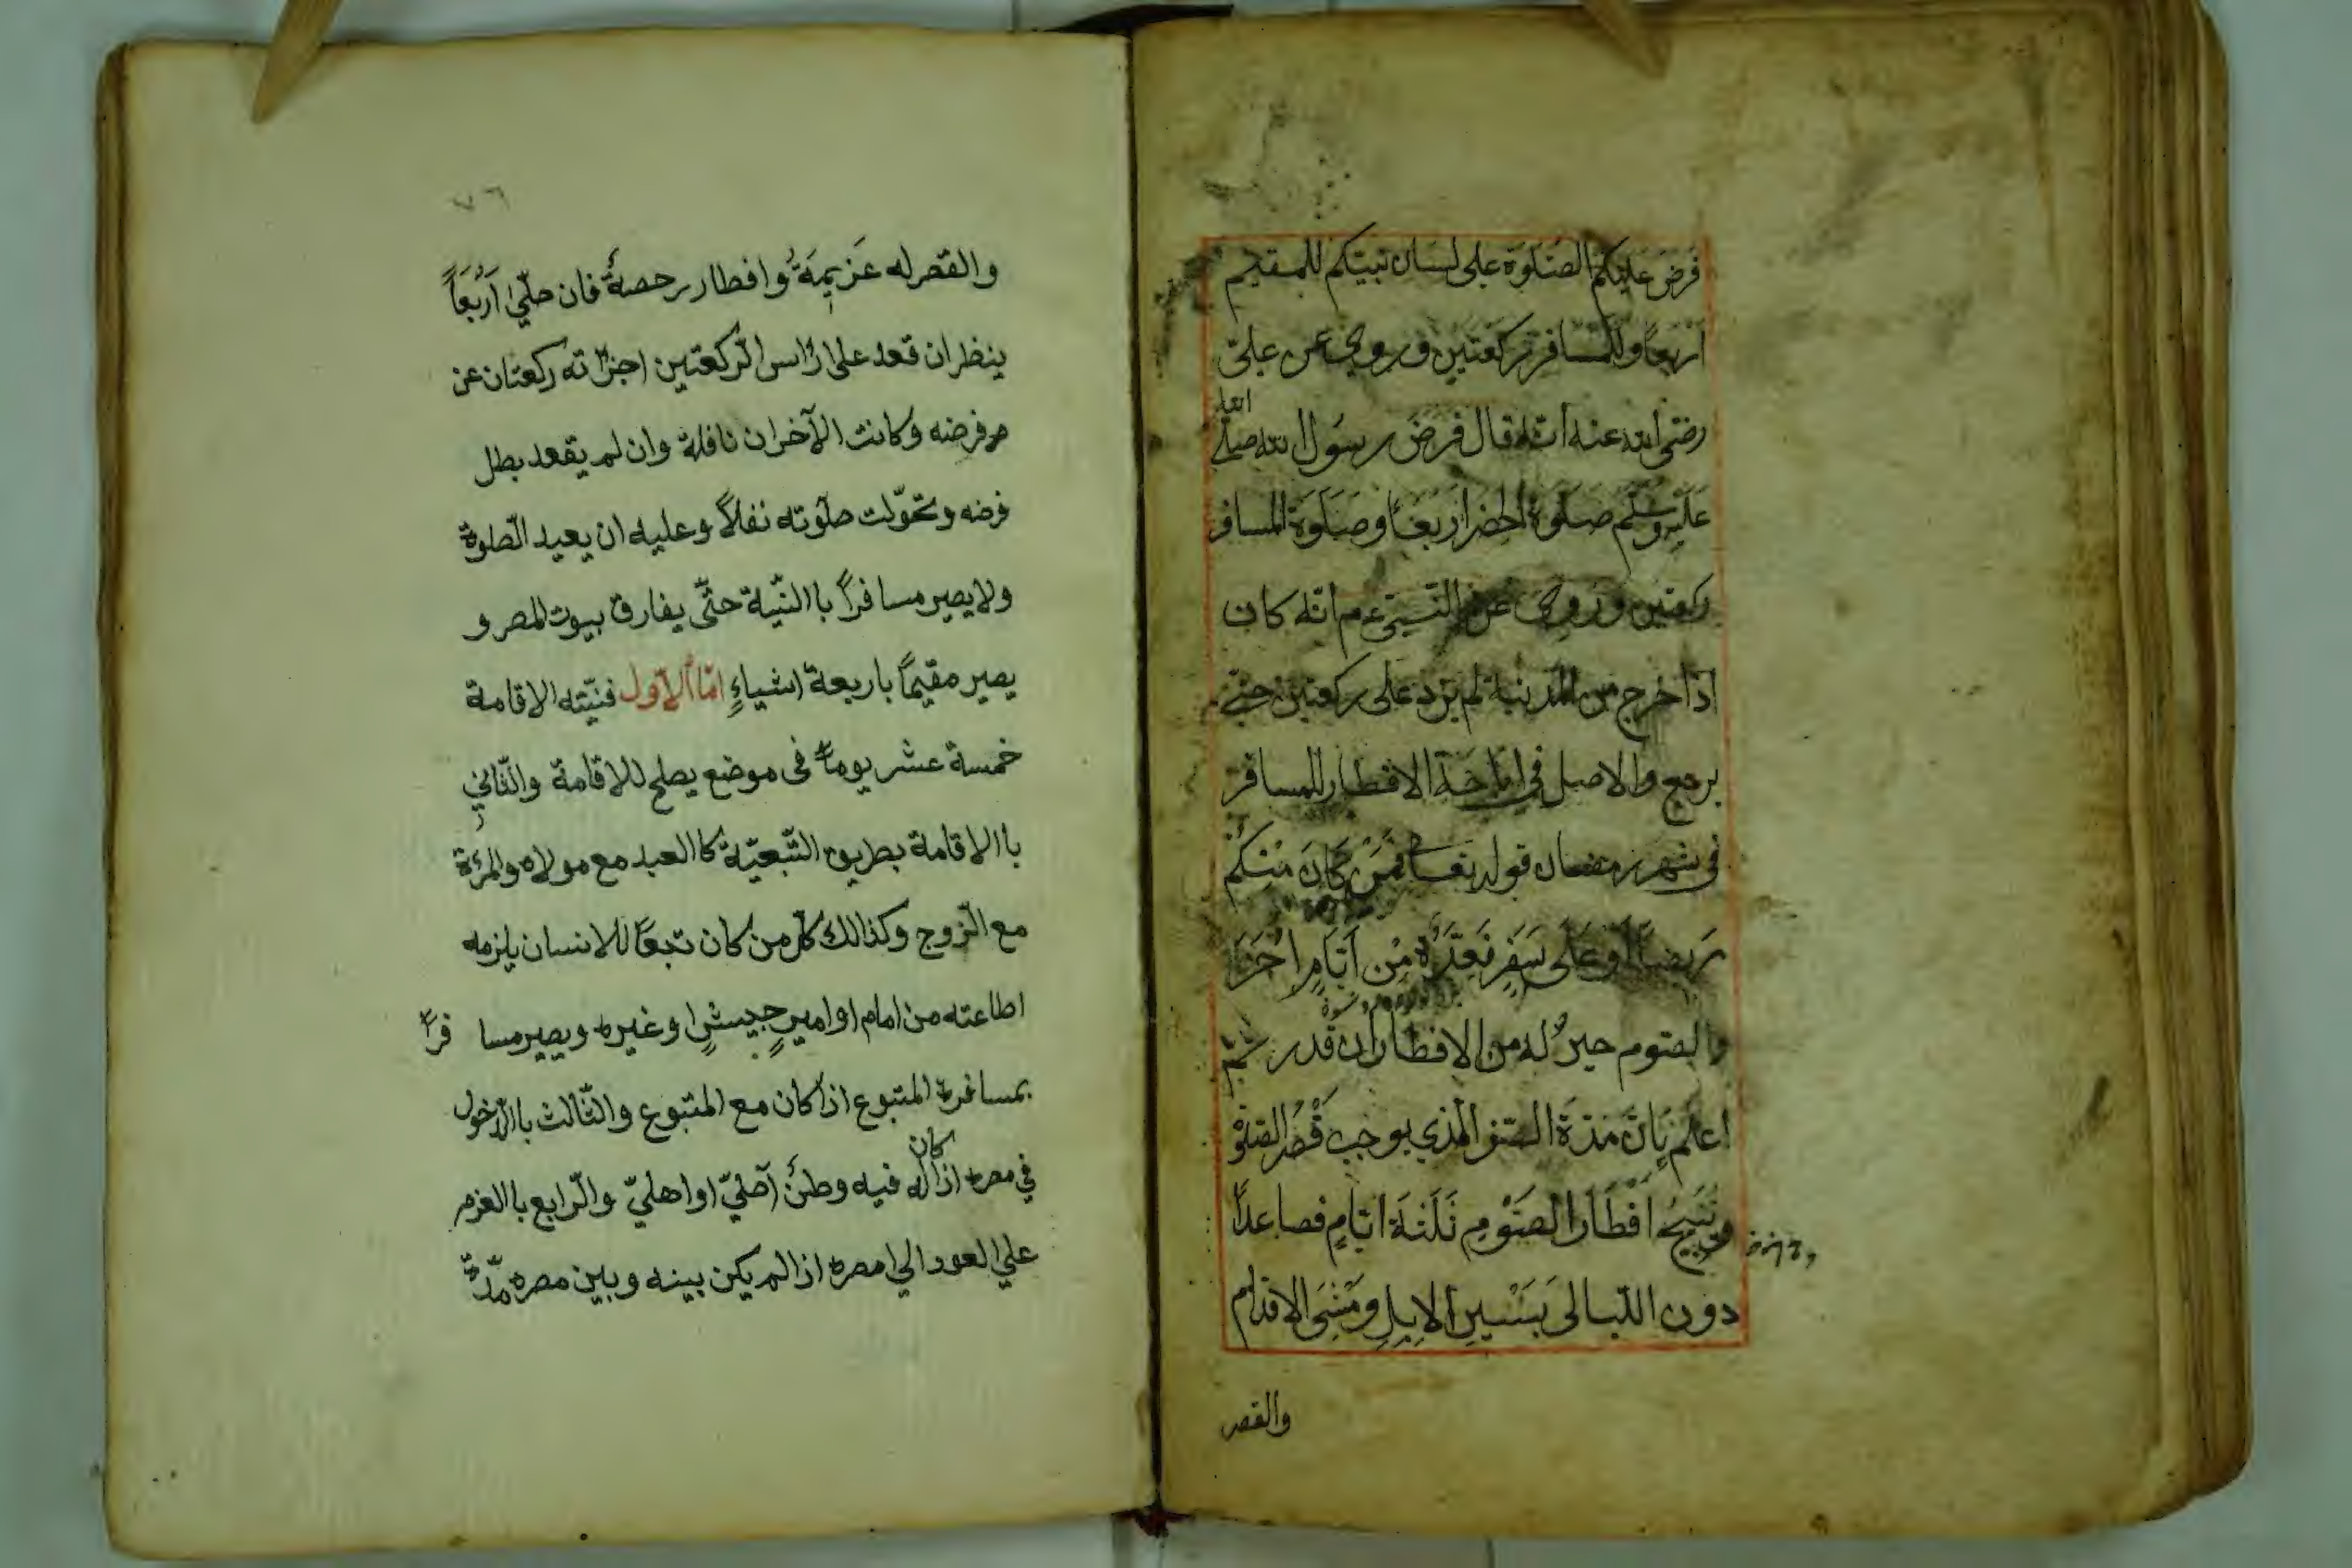 فَرَضَ عَلَيْكُمْ الصَّلَوةَ على لسَان نبيّكم للمُقيم
اَرْبَعاً وللمُسَافر رَكعَتَيْنِ وروي عن عليّ
رضي الله عنه انّه قال فَرَضَ رسُول الله صلى
الله
عَلَيْهِ وسَلّم صَلَوةَ الحضر اَرْبَعاً وصَلَوةَ المسافر
ركعتين وَرُوِيَ عن النّبيّ عم انّه كان
اذا خرج من المدينة لم يزد على ركعتين حتّى
يرجع والاصل في اباحَة الافطار للمسافر
في شهر رمضان قوله تعالى فَمَنْ كَانَ مِنْكُمْ
مَرِيضاً اَوْ عَلَى سَفَرٍ فَعِدَّةٌ مِنْ اَيَّامٍ اُخَرَ
والصّوم خيرٌ له من الافطار ان قدر
اعلم بانَّ مدّةَ السّفر الّذي يوجب قَصْرَ الصّلوة
وتُبيحُ افْطَارَ الصّوْمِ ثَلَثَةَ ايّامٍ فصاعداً
دون اللّيالى بسَيْرِ الابِلِ ومَشْىِ الاقدام
والقصر
٧٦
والقصر له عَزِيمَةٌ وافطار رحصةٌ فان صلّىٰ اَرْبَعَاً
ينظر ان قعد على رأس الرّكعتين اجزأته ركعتان عن
م فرضه وكانت الآخران نافلة وان لم يقعد بطل
فرضه وتحوّلت صلوته نفلاً وعليه ان يعيد الصّلوة
ولا يصير مسافراً باالنّية حتّى يفارق بيوت المصر و
يصير مقيماً باربعة اشياءٍ امّا الاوّل فنيّته الاقامة
خمسة عشر يوماً فى موضع يصلح للاقامة والثّاني
باالاقامة بطريق التّبعيّة كاالعبد مع مولاه والمرءة
مع الزّوج وكذالك كلّ من كان تبعاً للانسان يلزمه
اطاعته من امام او اميرِ جيشٍ اوغيره ويصير مسا فراً
بمسافرة المتبوع اذا كان مع المتبوع والثّالث باالدّخول
كان
في مصره اذا له فيه وطنٌ اصليّ او اهليّ والرّابع باالعزم
علي العود الي مصره اذا لم يكن بينه وبين مصره مدّة